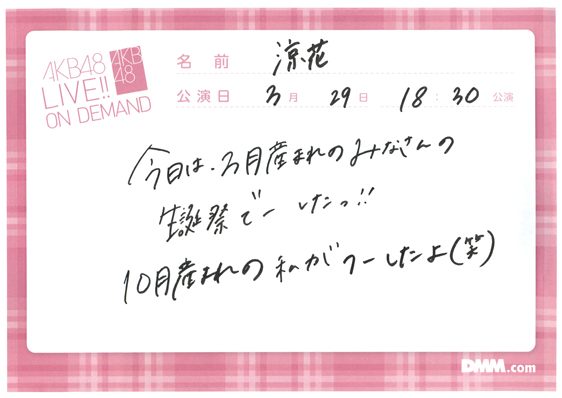 AKB48
LIVE!!
ON DEMAND
AKB
48
名前 涼花
公演日 3月 29日 18:30 公演
今日は、3月産まれのみなさんの
生誕祭でーしたっ!!
10月産まれの私がMCしたよ(笑)
DMM.com